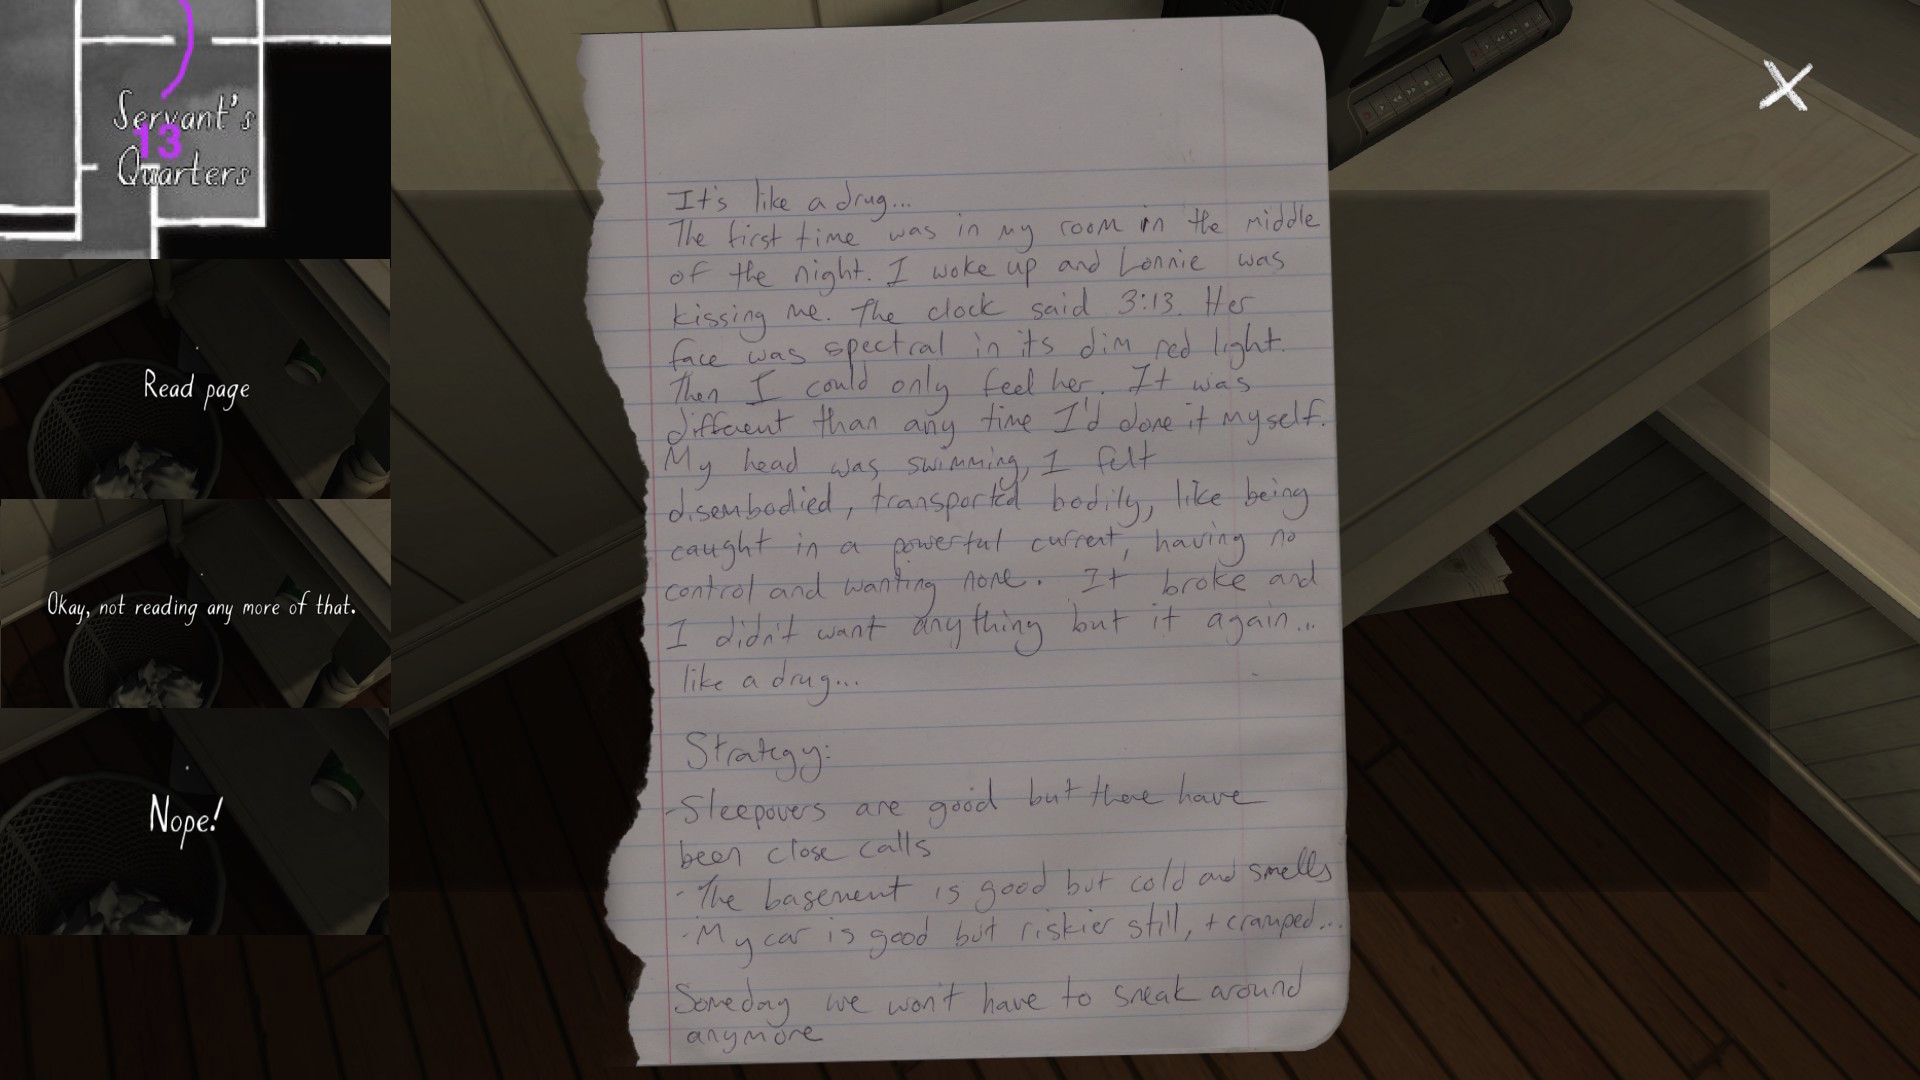 Servant's
13
Quarters
Read page
Okay, not reading any more of that.
Nope!
It's like a drug...
The first time was in my room in the middle
of the night. I woke up and Lonnie was
kissing me. The clock said 3:13. Her
face was spectral in its dim red light.
Then I could only feel her. It was
different than any time I'd done it myself.
My head was swimming, I felt
disembodied, transported bodily, like being
caught in a powerful current, having no
control and wanting none. It broke and
I didn't want anything but it again...
like a drug...
Strategy:
-Sleepovers are good but there have
been close calls
-The basement is good but cold and smells
-My car is good but riskier still, + cramped...
Someday we won't have to sneak around
anymore